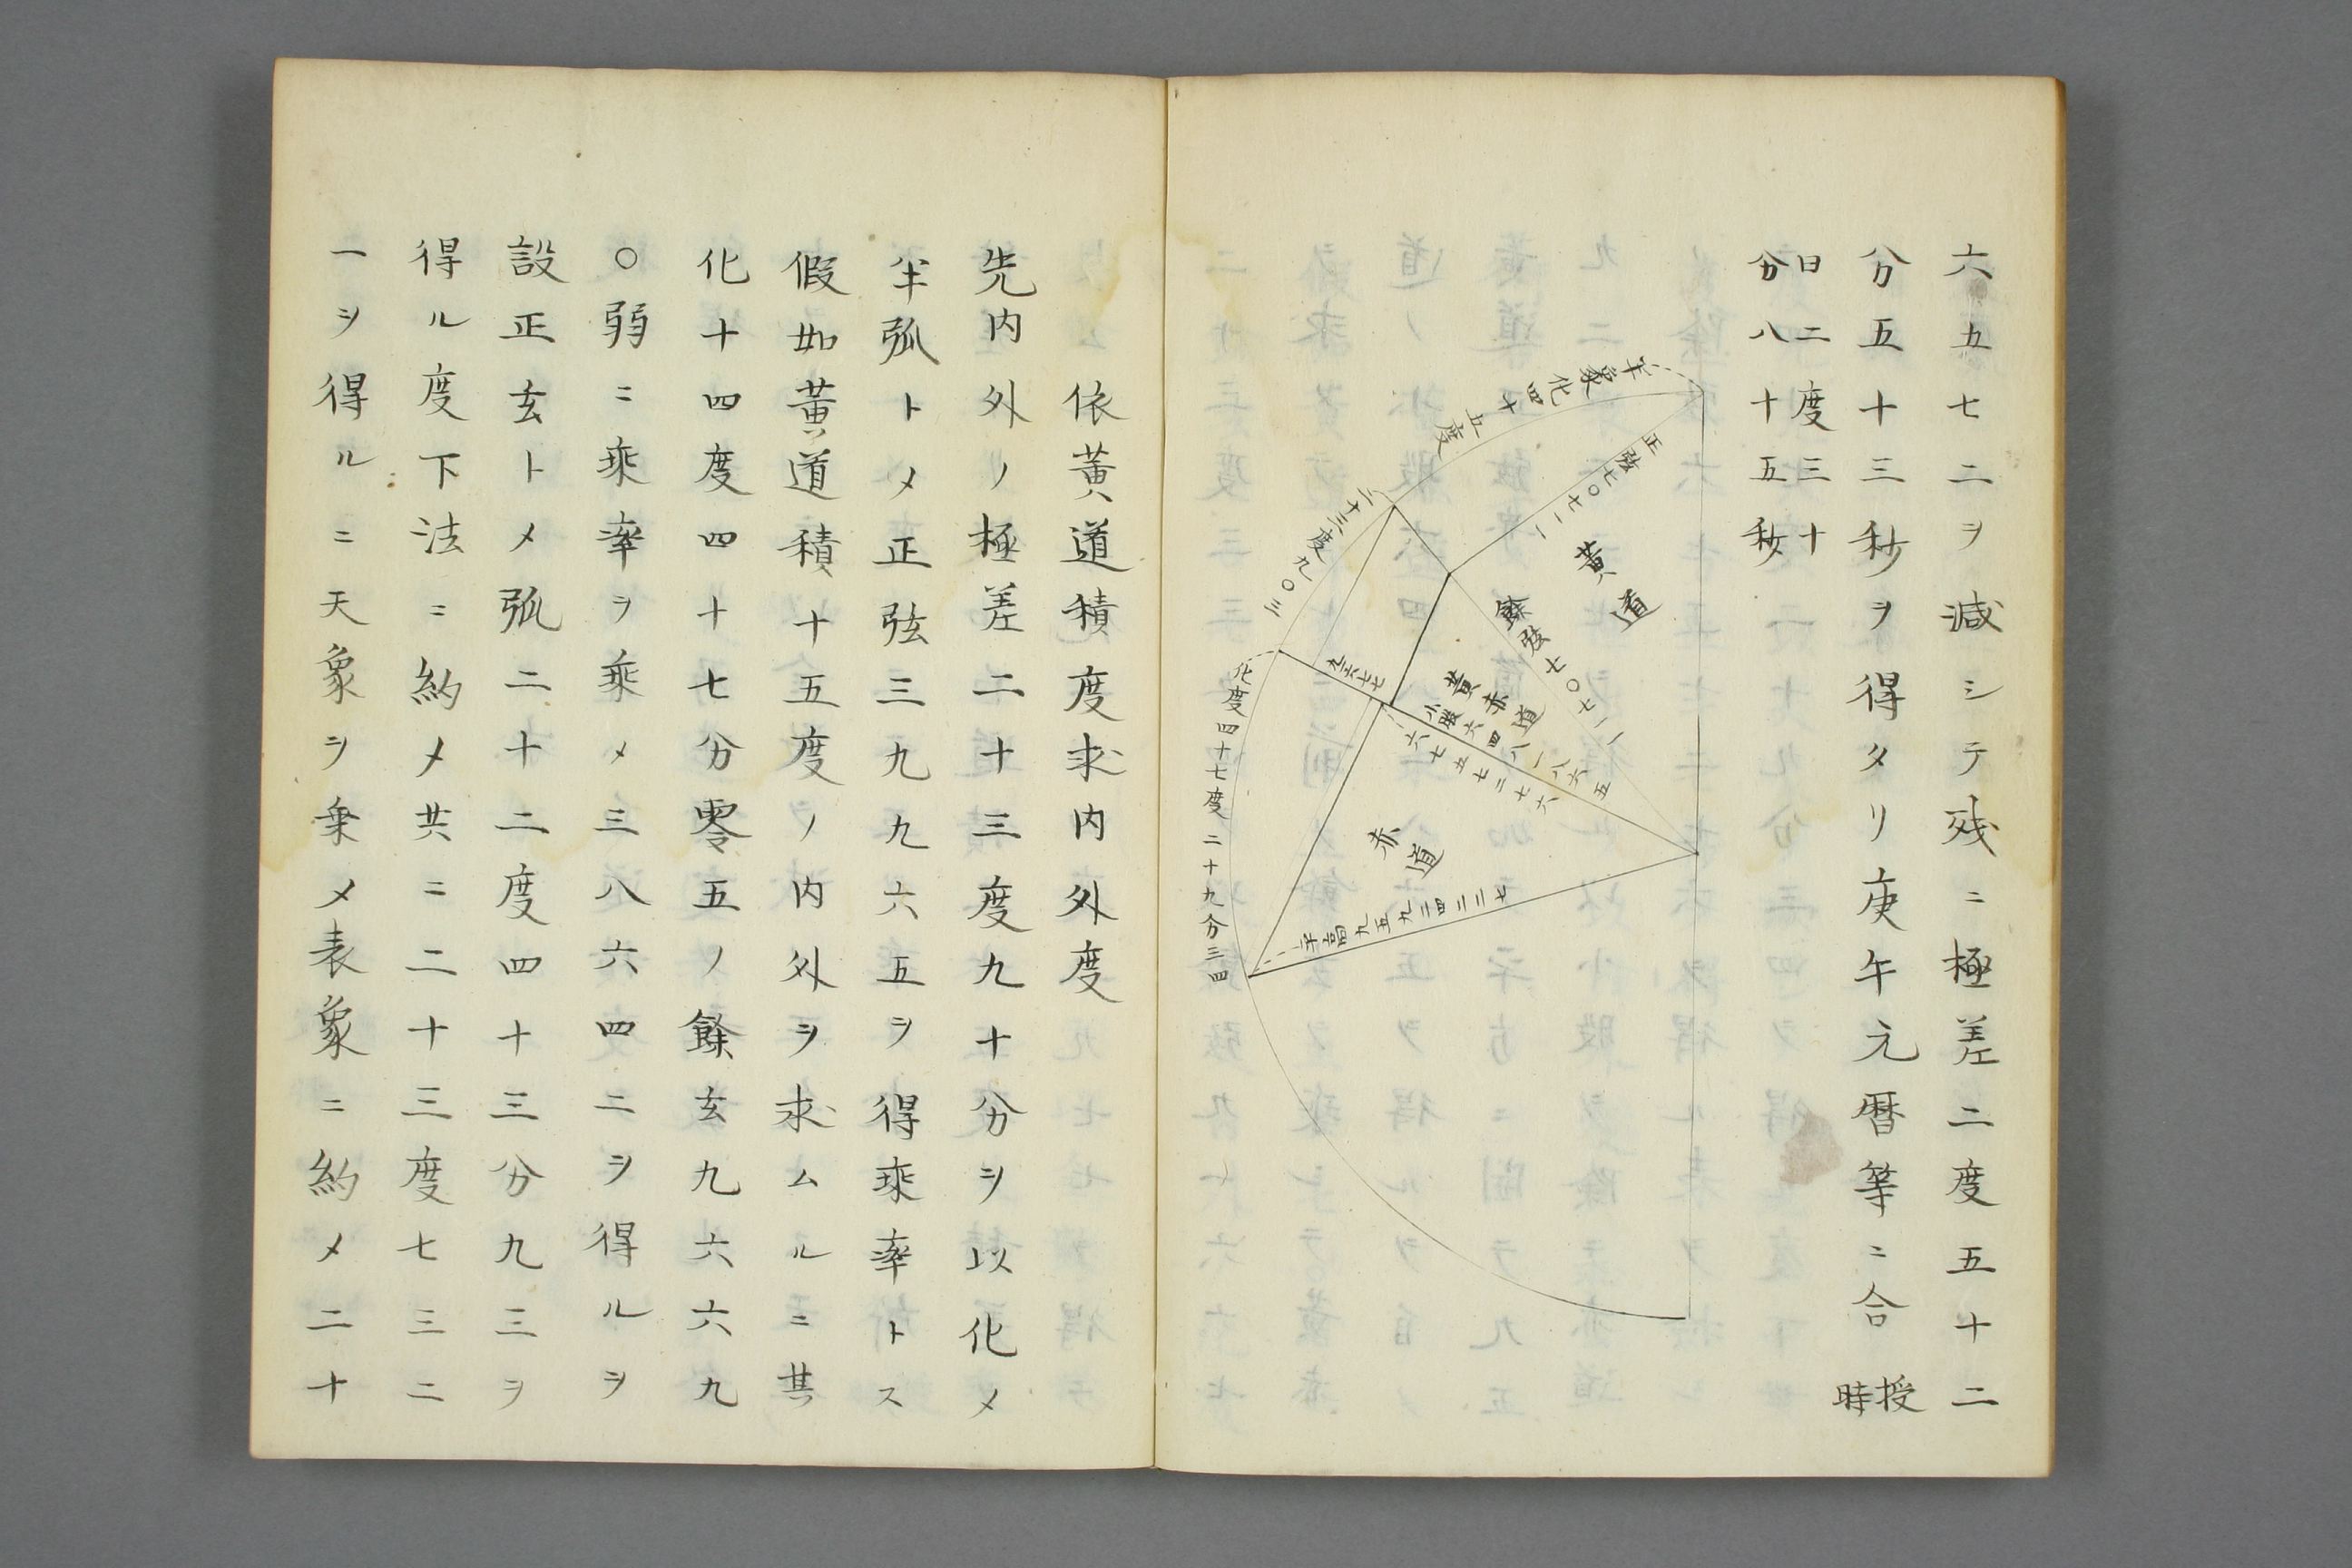 六五七二ヲ減シテ残ニ極差二度五十二
分五十三秒ヲ得タリ庚午元暦等ニ合授時
日二度三十
分八十五秒
半象化四十五度
正弦七〇七一一
黄道
餘弦七〇七一一
二十三度九〇三
黄赤道
小股六四八一八六五
六七五七三七六
化度四十七度二十九分三四
赤道
半高九五九二四二三七
依黄道積度求内外度
先内外ノ極差二十三度九十分ヲ以化メ
半弧トメ正弦三九九六五ヲ得乘率トス
假如黄道積十五度ノ内外ヲ求ムルニ其
化十四度四十七分零五ノ餘玄九六六九
〇弱ニ乘率ヲ乘メ三八六四ニヲ得ルヲ
設正玄トメ弧二十二度四十三分九三ヲ
得ル度下法ニ約メ共ニ二十三度七三二
一ヲ得ルニ天象ヲ乗メ表象ニ約メ二十